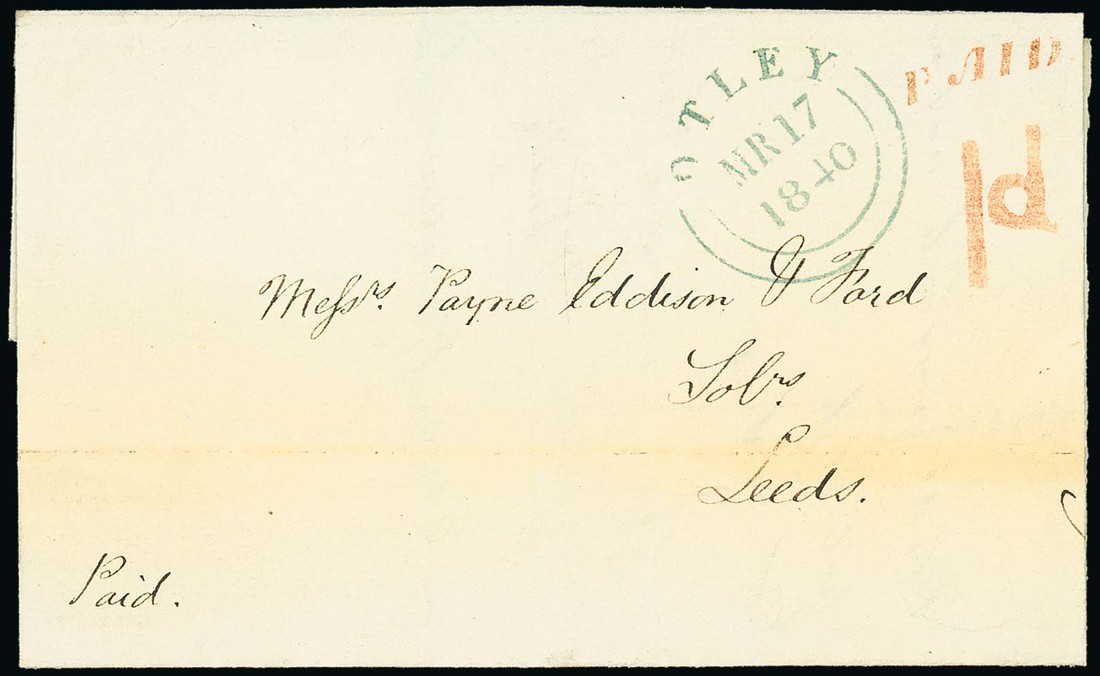 OTLEY
MR 17
1840
PAID.
1d
Messrs. Payne Eddison & Ford
Solrs.
Leeds.
Paid.